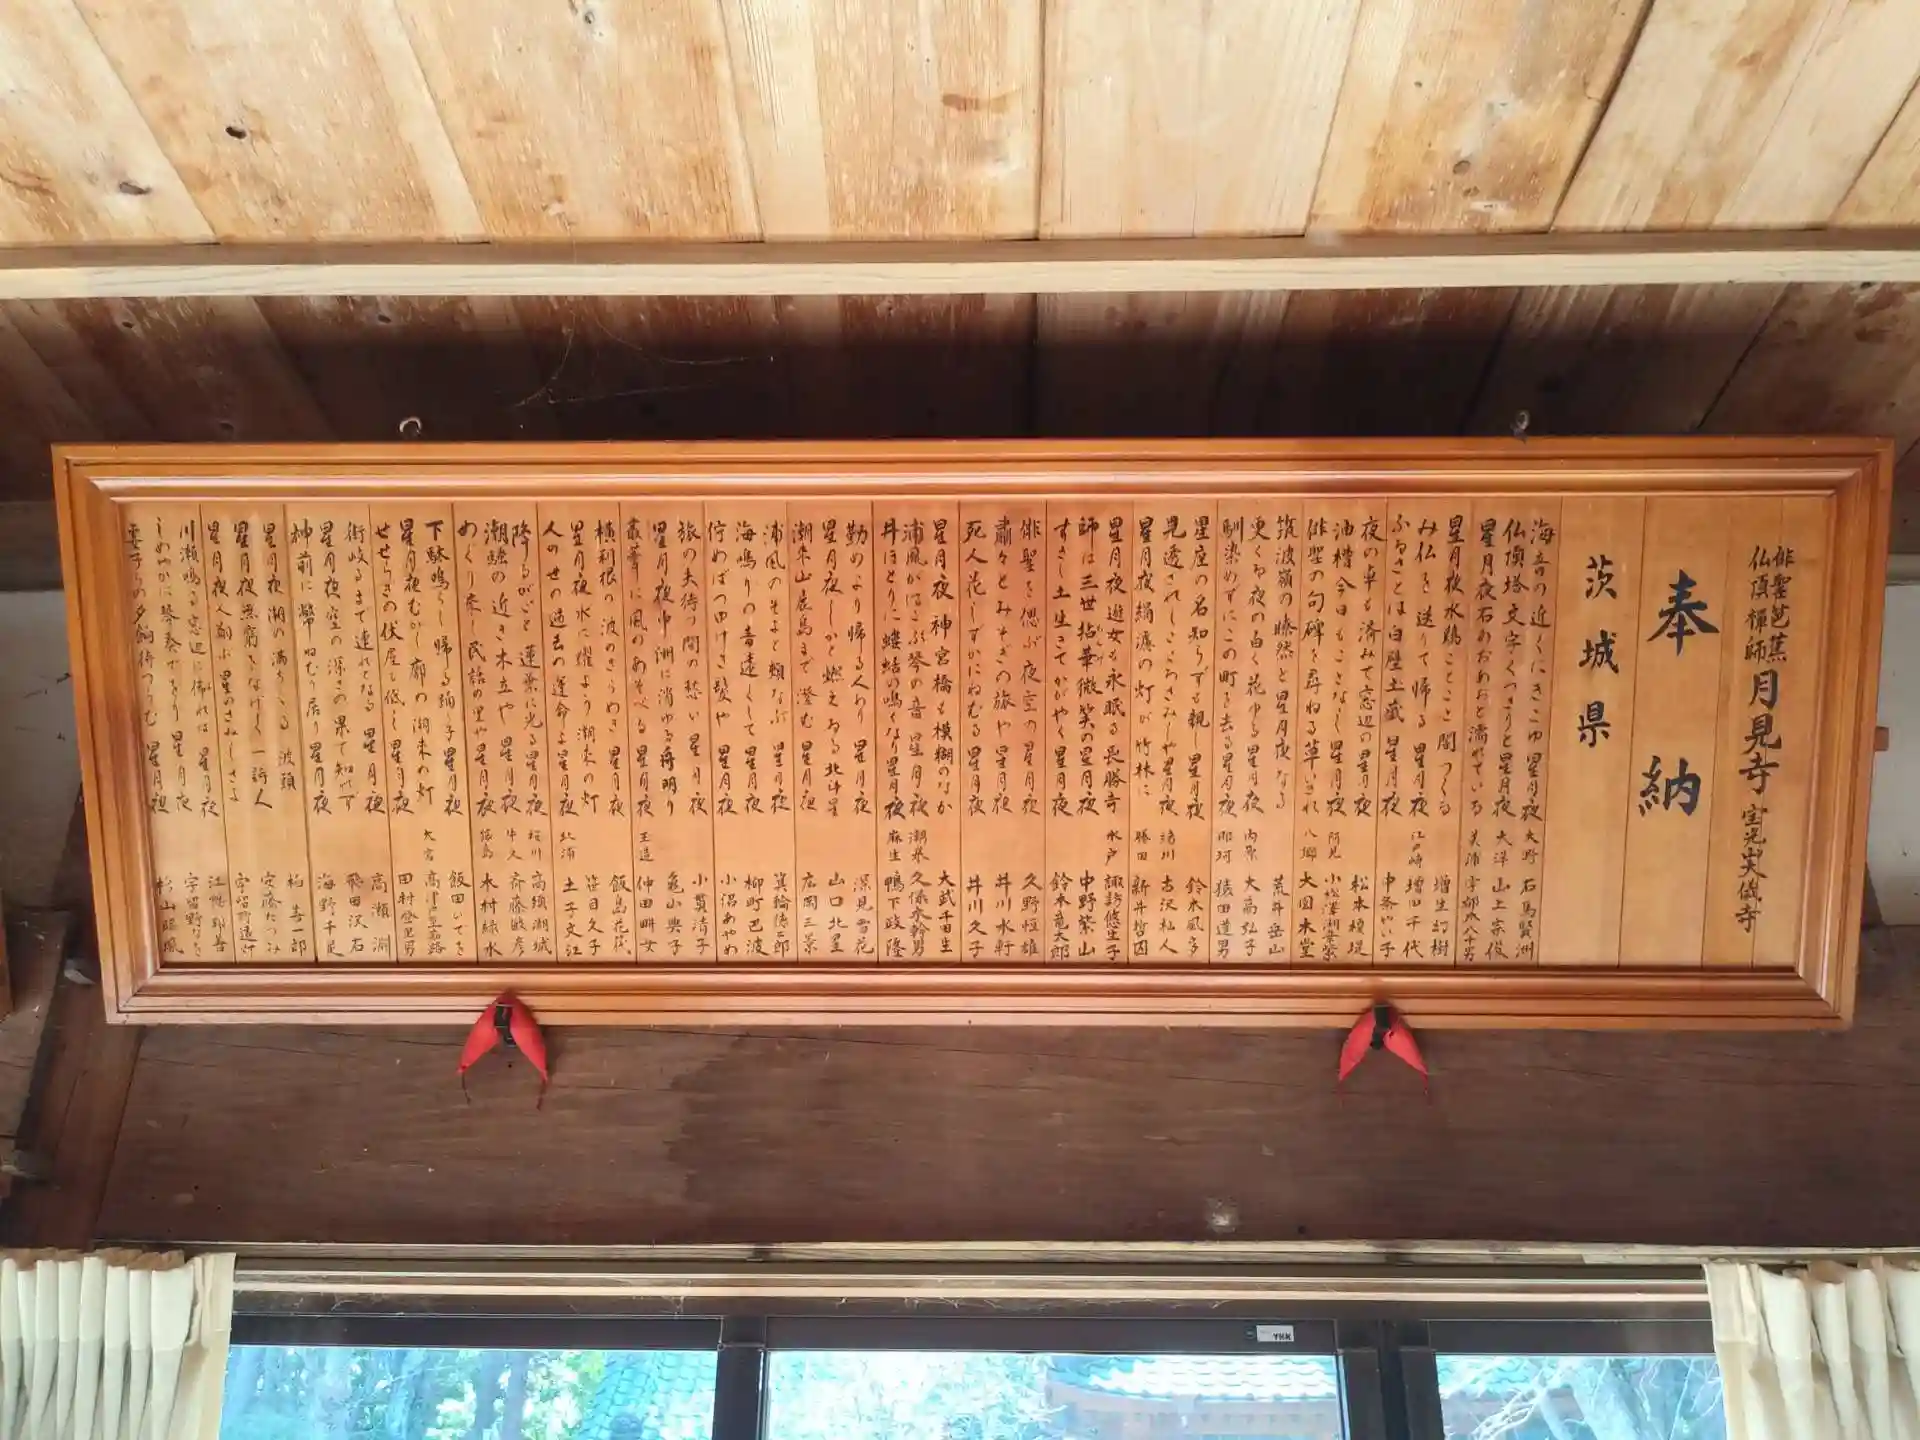 俳聖芭蕉
仏頂禅師
月見寺 宝光実儀寺
奉納
茨城県
海音の近くにきこゆ星月夜 大野 石馬賢洲
仏頂塔文字くっきりと星月夜 大洋 山上宗俊
星月夜石あおあおと濡れている 美浦 宇都木八十男
星月夜水鶏ことこと闇つくる 増生幻樹
み仏を送りて帰る星月夜 江戸崎 増田千代
ふるさとは白壁土蔵星月夜 中条いい子
夜の卓も済みて窓辺の星月夜 松本榎堤
油槽今日もことなし星月夜 阿見
俳聖の句碑を尋ねる草いきれ 八郷 大図木堂
筑波嶺の瞭然と星月夜なる 荒井岳山
更くる夜の白く花ゆる星月夜 内原 大高弘子
馴染めずにこの町を去る星月夜 那珂 猿田道男
星座の名知らずも親し星月夜 鈴木風多
見透されしこころさみしや星月夜 緒川 古沢私人
星月夜絹漉の灯が竹林に 勝田 新井哲囚
星月夜遊女も永眠る長勝寺 水戸 諏訪悠生子
師は三世拈華微笑の星月夜 中野紫山
すきし土生きてかがやく星月夜 鈴木竜太郎
俳聖を偲ぶ夜空の星月夜 久野恒雄
粛々とみそぎの旅や星月夜 井川水軒
死人花しずかにねむる星月夜 井川久子
星月夜神宮橋も模糊のなか 大武千田生
浦風がはこぶ琴の音星月夜 潮来 久保木幹男
井ほとりに螻蛄の鳴くなり星月夜 麻生 鴨下政隆
勤めより帰る人あり星月夜 深見雪花
星月夜しかと燃えゐる北斗星 山口北星
潮来山鹿島まで澄む星月夜 広岡三景
浦風のそよと頬なぶ星月夜 箕輪徳三郎
海鳴りの音遠くして星月夜 柳町巴波
佇めばつのけさき髪や星月夜 小沼あやめ
旅の夫待つ間の愁い星月夜 小貫清子
星月夜中洲に消ゆる舟明り 亀山典子
叢葦に風のあそべる星月夜 玉造 仲田畊女
横利根の波のきらめき星月夜 飯島花代
星月夜水に耀よう潮来の灯 笹目久子
人の世の過去の運命よ星月夜 北浦 土子文江
降るがごと蓮葉に光る星月夜 桜川 高須湖城
潮騒の近き木立や星月夜 牛久 斉藤敏彦
めぐり来し民話の里や星月夜 鹿島 木村緑水
下駄鳴らし帰る踊り子星月夜 飯田ひでき
星月夜むかし廓の潮来の灯 大宮
せせらぎの伏屋を低し星月夜 田村登里男
街岐るまで連れてなる星月夜 高瀬淵
星月夜空の深さの果て知れず 飛田沢石
神前に幣ねむり居り星月夜 海野千足
星月夜潮の満ちくる波頭 梅喜一郎
星月夜無窮をなげく一詩人 安藤たつみ
星月夜人創ぶ星のさみしさよ 宇留野遠灯
川瀬鳴る窓辺に佛れば星月夜
しめやかに琴奏でをり星月夜
妻子らの夕餉待つらむ星月夜 松山暁風
YKK